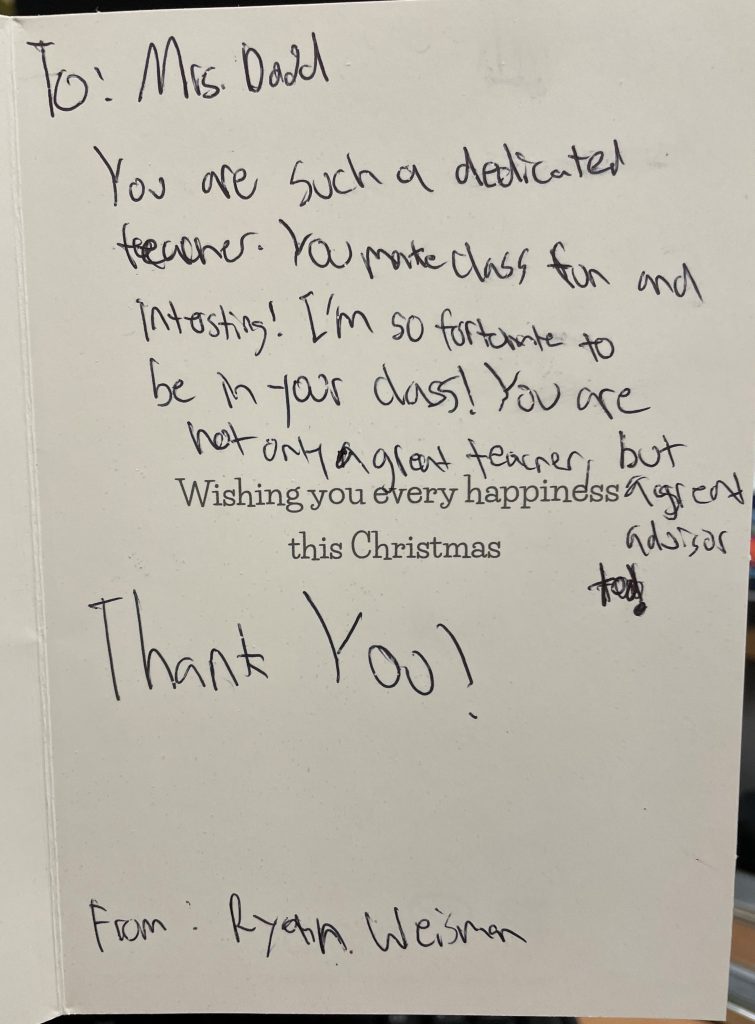 To: Mrs. Dadd
You are such a dedicated
teacher. You make class fun and
intosting! I'm so fortunate to
be in your class! You are
not only a great teacher, but
Wishing you every happiness a great
this Christmas advisor
too!
Thank You!
From: Ryan Weisman